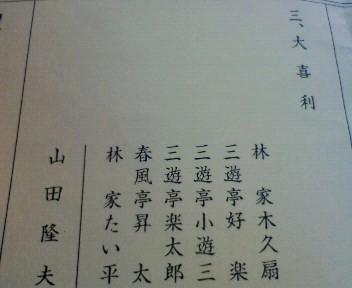 三、大喜利
林家木久扇
三遊亭好楽
三遊亭小遊三
三遊亭楽太郎
春風亭昇太
林家たい平
山田隆夫